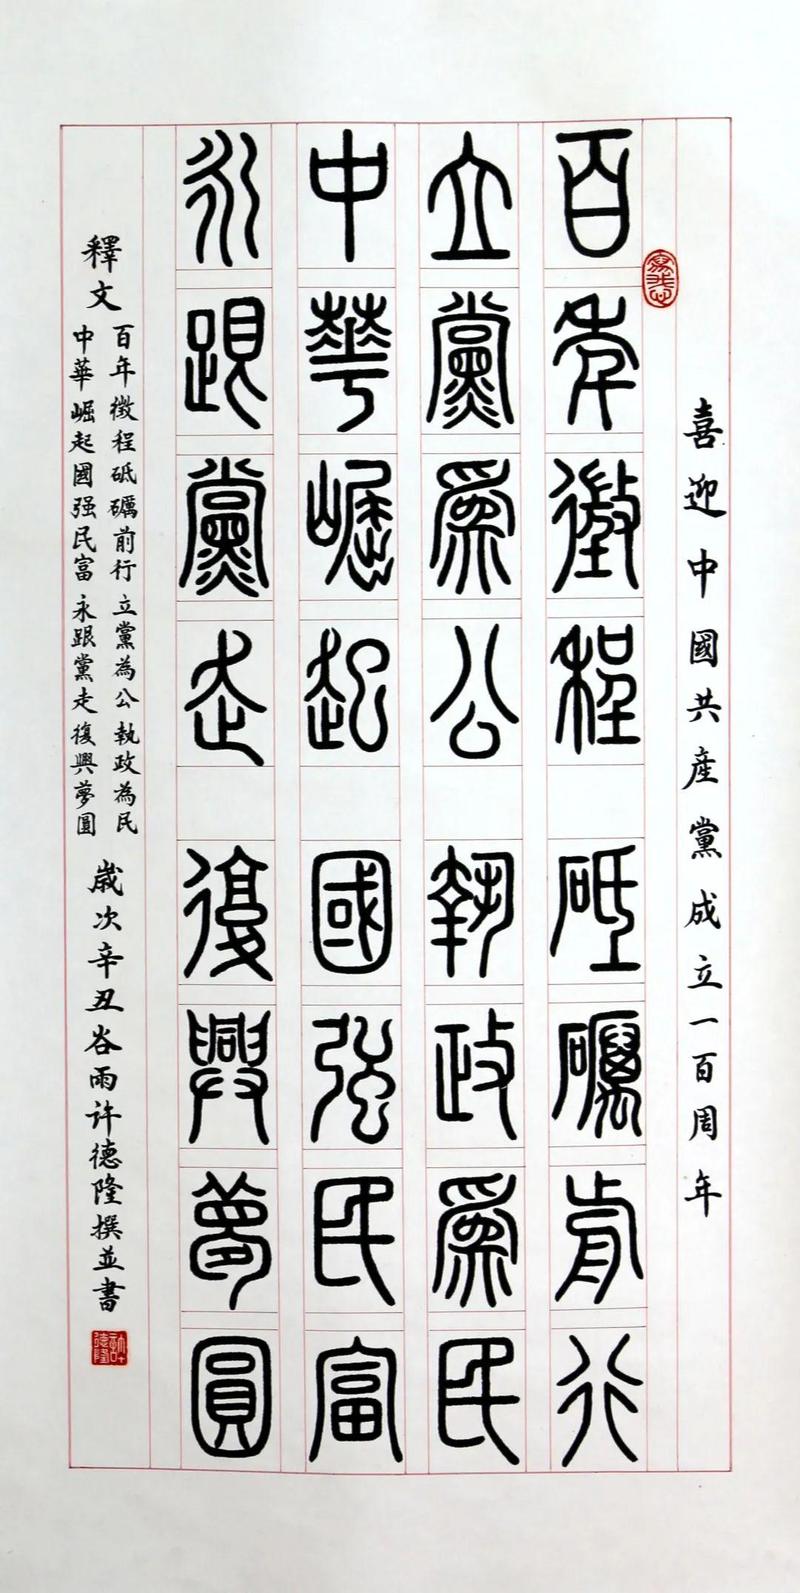 喜迎中國共産黨成立一百周年
百年徵程 砥礪前行
立黨為公 執政為民
中華崛起 國强民富
永跟黨走 復興夢圓
釋文
百年徵程砥礪前行 立黨為公 執政為民
中華崛起國强民富 永跟黨走 復興夢圓
歲次辛丑谷雨许德隆撰並書